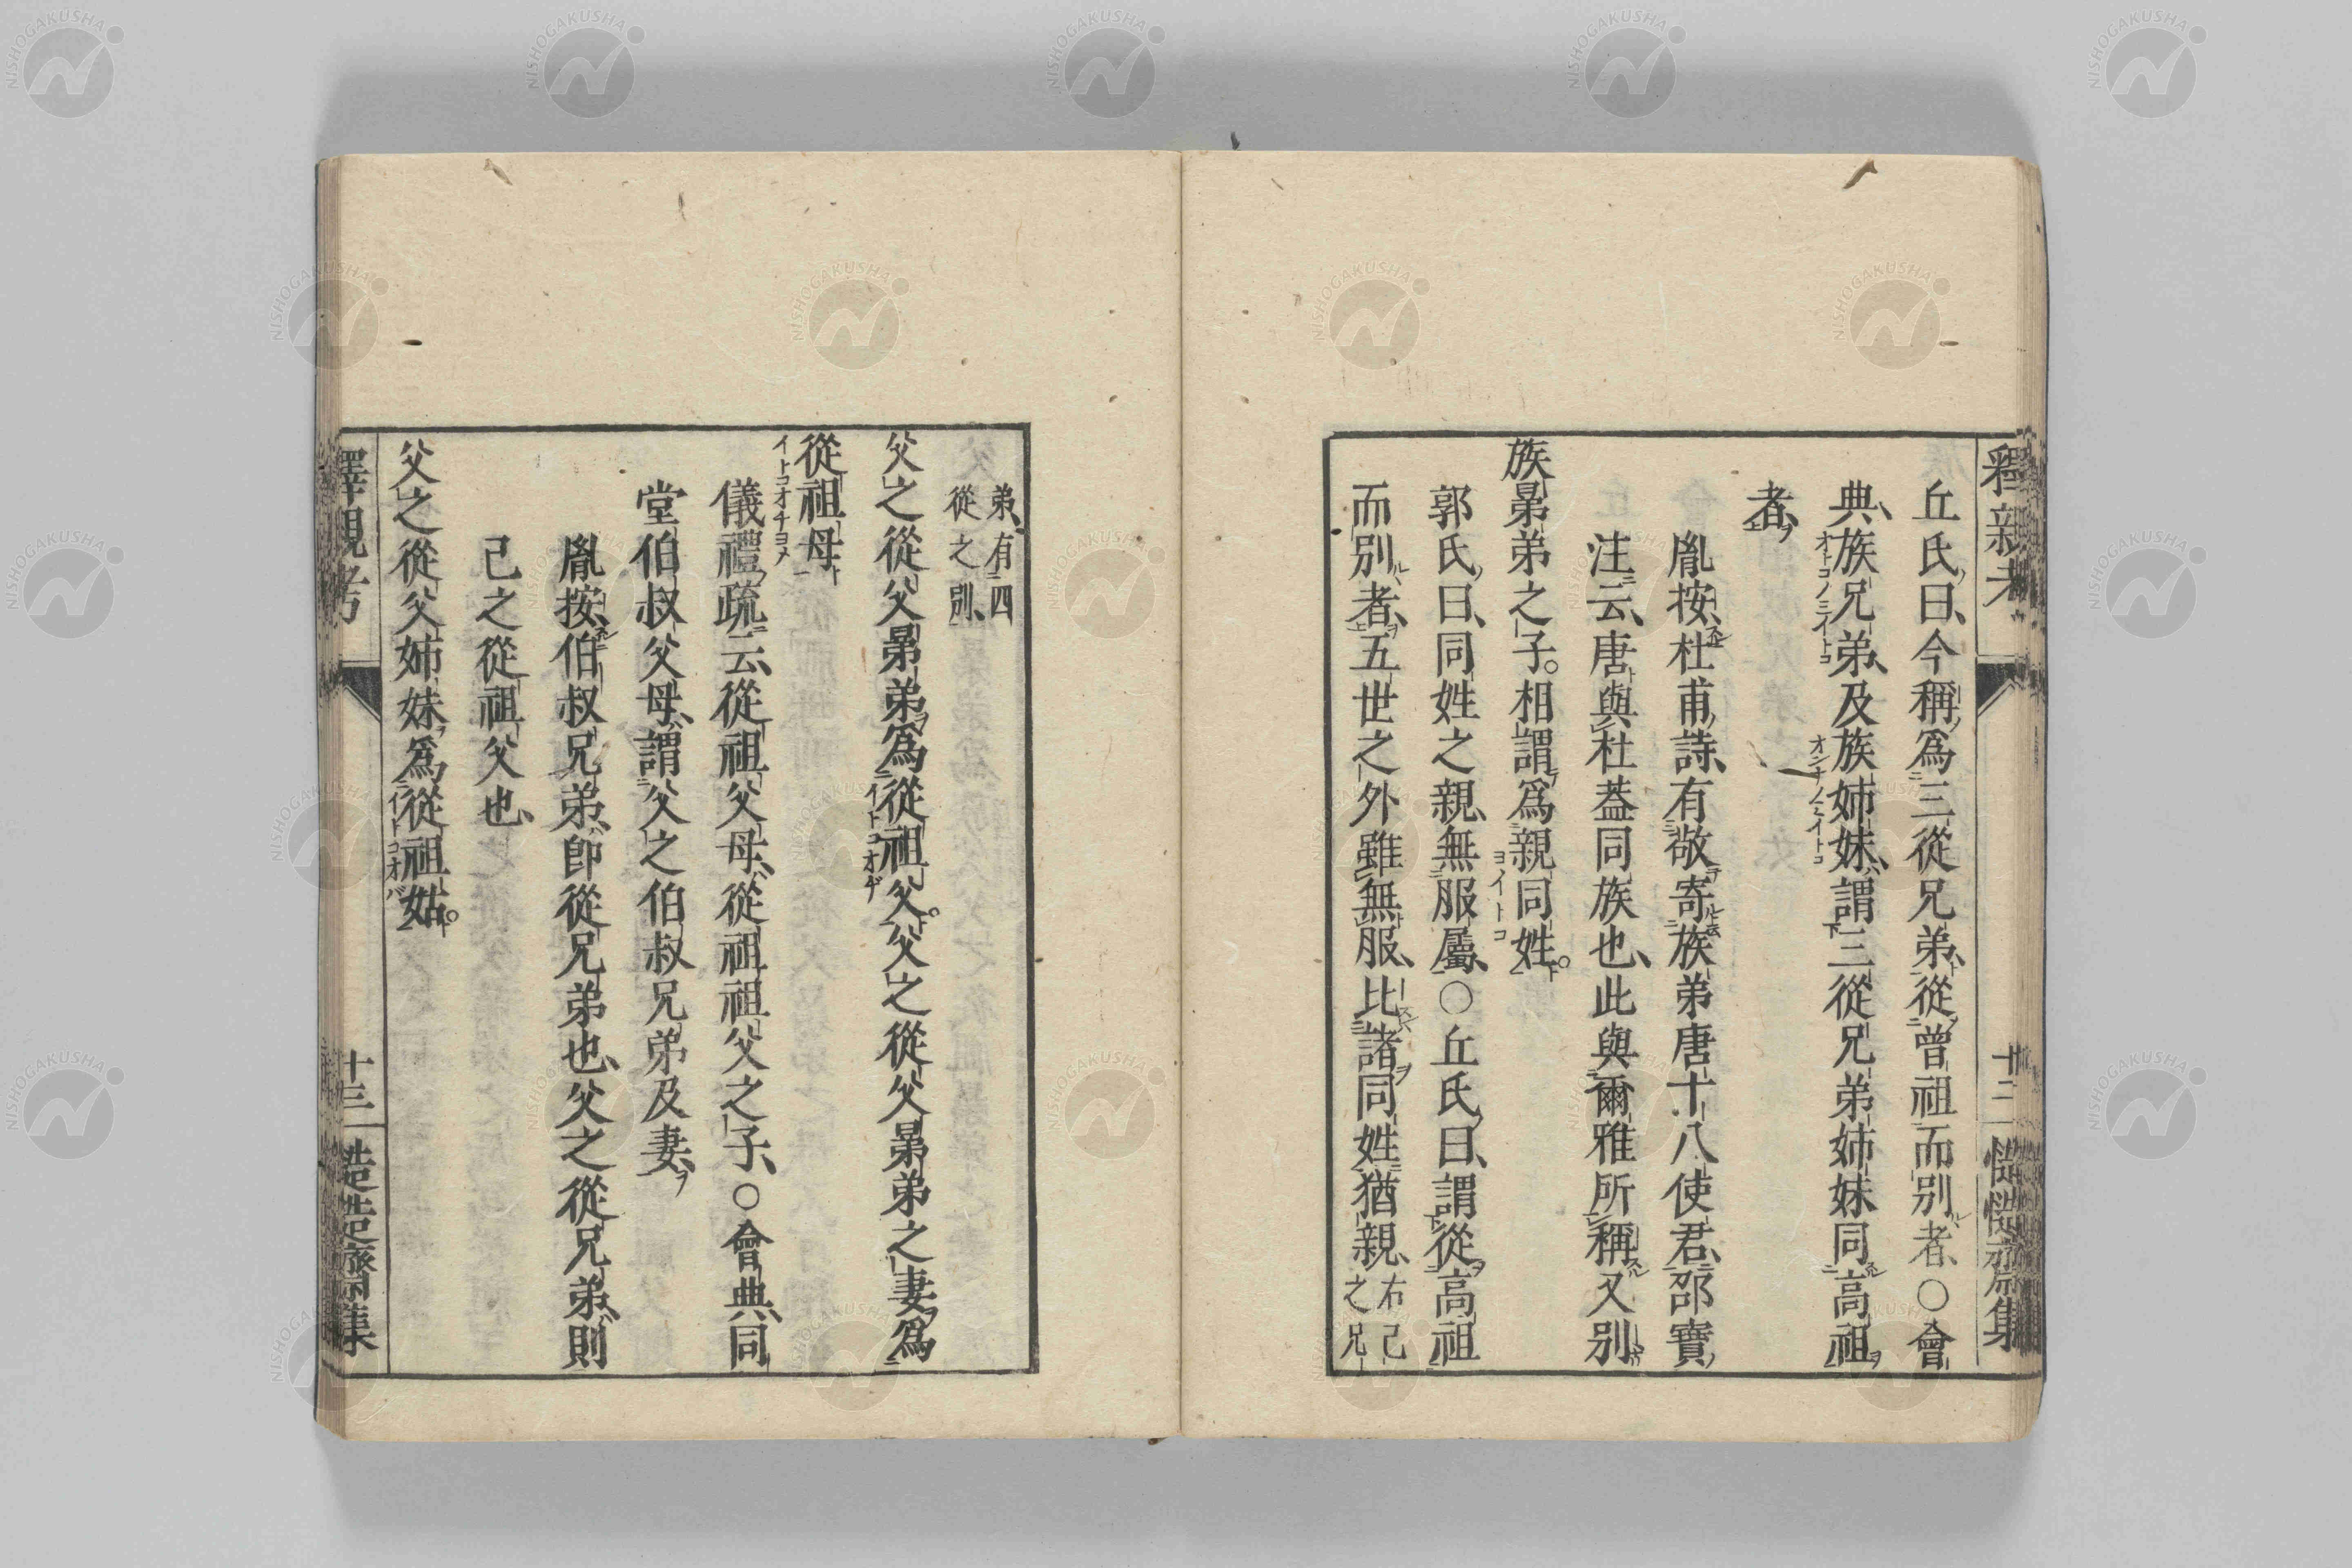 釋親考
十二
慥慥齋集
丘氏曰、今稱爲三從兄弟、從曾祖而別者、○會
典、族兄弟、及族姉妹、謂三從兄弟姉妹同高祖
オトコノミイトコ
オンナノミイトコ
者、
胤按、杜甫詩、有敬寄族弟唐十八使君、邵寶
注云、唐與杜葢同族也、此與爾雅所稱又別
族晜弟之子。相謂爲親同姓。
ヨイトコ
郭氏曰、同姓之親、無服屬、○丘氏曰、謂從高祖
而別者、五世之外雖無服、比諸同姓猶親、
右己
之兄
弟、有四
從之別、
父之從父晜弟、爲從祖父。父之從父晜弟之妻爲
イトコオヂ
從祖母
イトコオチヨメ
儀禮疏云、從祖父母、從祖祖父之子、○會典、同
堂伯叔父母、謂父之伯叔兄弟及妻、
胤按、伯叔兄弟、卽從兄弟也、父之從兄弟、則
己之從祖父也、
父之從父姉妹、爲從祖姑。
イトコオバ
釋親考
十三
慥慥齋集
NISHOGAKUSHA